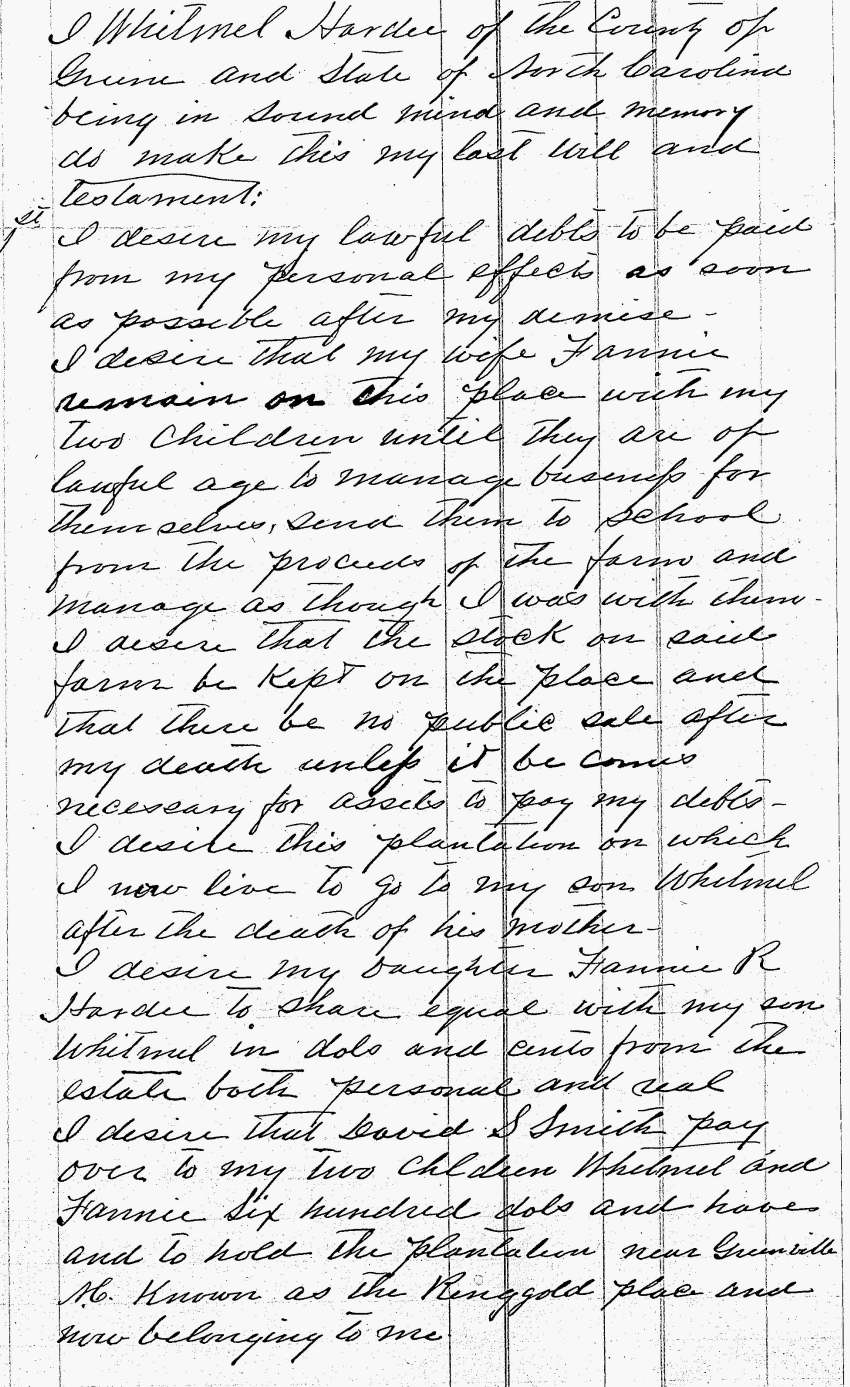 I Whitmel Hardee of the County of
Greene and State of North Carolina
being in sound mind and memory
do make this my last Will and
testament:
1st
I desire my lawful debts to be paid
from my personal effects as soon
as possible after my demise -
I desire that my wife Fannie
remain on this place with my
two children until they are of
lawful age to manage buseness for
themselves, send them to school
from the proceeds of the farm and
manage as though I was with them -
I desire that the stock on said
farm be kept on the place and
that there be no public sale after
my death unless it be comes
necessary for assets to pay my debts -
I desire this plantation on which
I now live to go to my son Whitmel
after the death of his mother -
I desire my Daughter Fannie R
Hardee to share equal with my son
Whitmel in dols and cents from the
estate both personal and real
I desire that David S Smith pay
over to my two chldren Whitmel and
Fannie Six hundred dols and have
and to hold the plantation near Greenville
N.C. Known as the Ringgold place and
now belonging to me